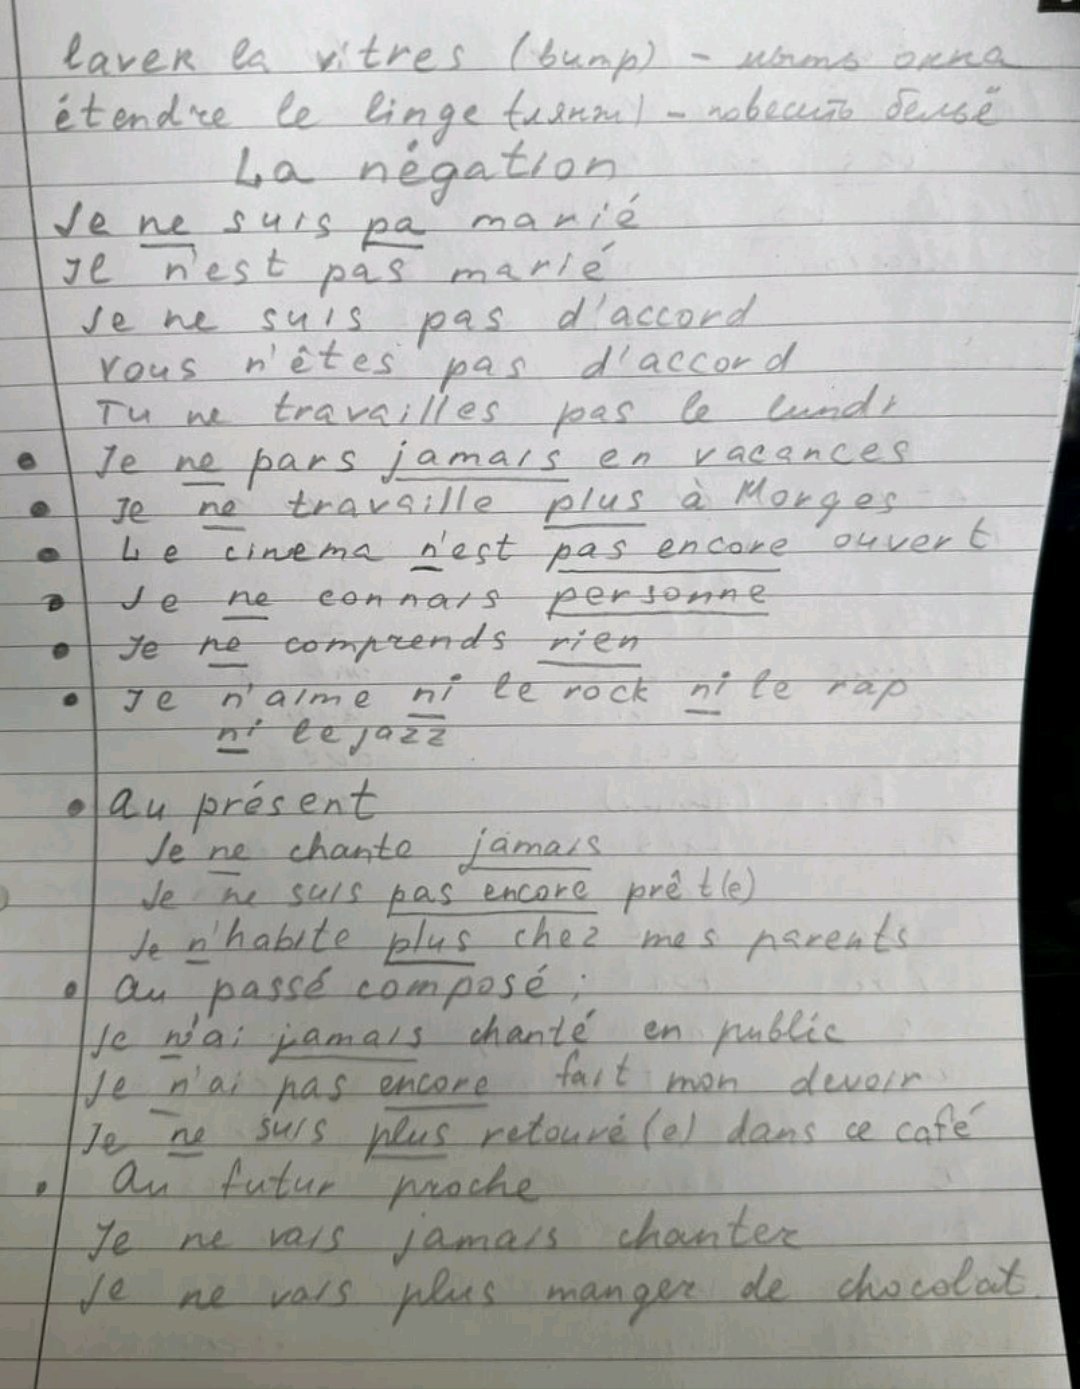 laver la vitres (витр) - мыть окна
étendre le linge (лянж) - повесить бельё
La négation
Je ne suis pa marié
Il n'est pas marié
Je ne suis pas d'accord
Vous n'êtes pas d'accord
Tu ne travailles pas le lundi
Je ne pars jamais en vacances
Je ne travaille plus à Morges
Le cinema n'est pas encore ouvert
Je ne connais personne
Je ne comprends rien
Je n'aime ni le rock ni le rap
ni le jazz
au présent
Je ne chante jamais
Je ne suis pas encore prêt(e)
Je n'habite plus chez mes parents
au passé composé;
Je n'ai jamais chanté en public
Je n'ai pas encore fait mon devoir
Je ne suis plus retouré(e) dans ce café
au futur proche
Je ne vais jamais chanter
Je ne vais plus manger de chocolat.